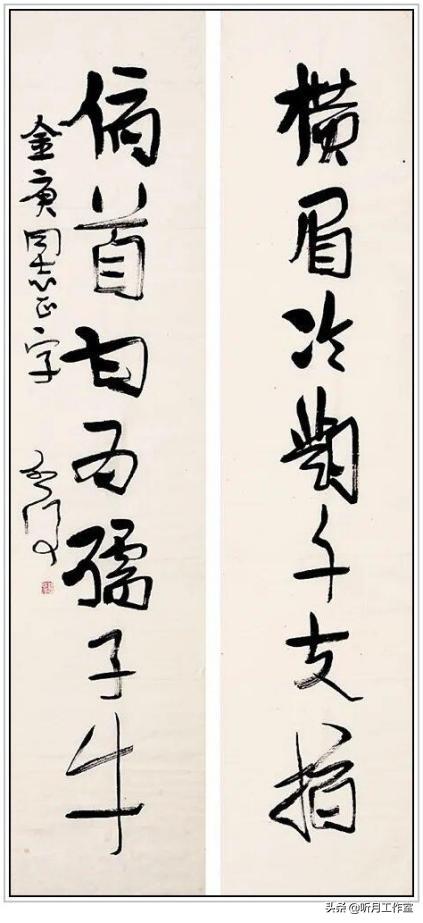 橫眉冷對千夫指
俯首甘为孺子牛
金庚同志正字
头条 @听月工作室